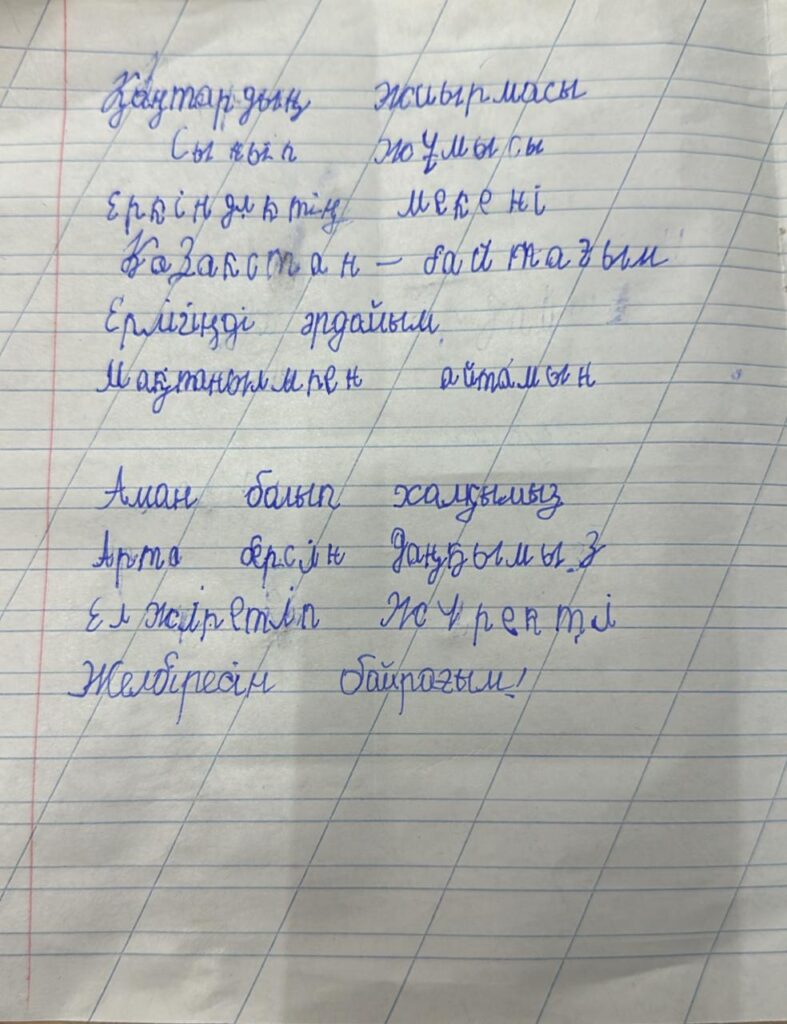 Қаңтардың жиырмасы
Сынып жұмысы
Еркіндіктің мекені
Қазақстан – байтағым
Ерлігіңді әрдайым
Мақтанышпрен айтамын
Аман болып халқымыз
Арта берсін даңқымыз
Елжіретіп жүректі
Желбіресін байрағым!